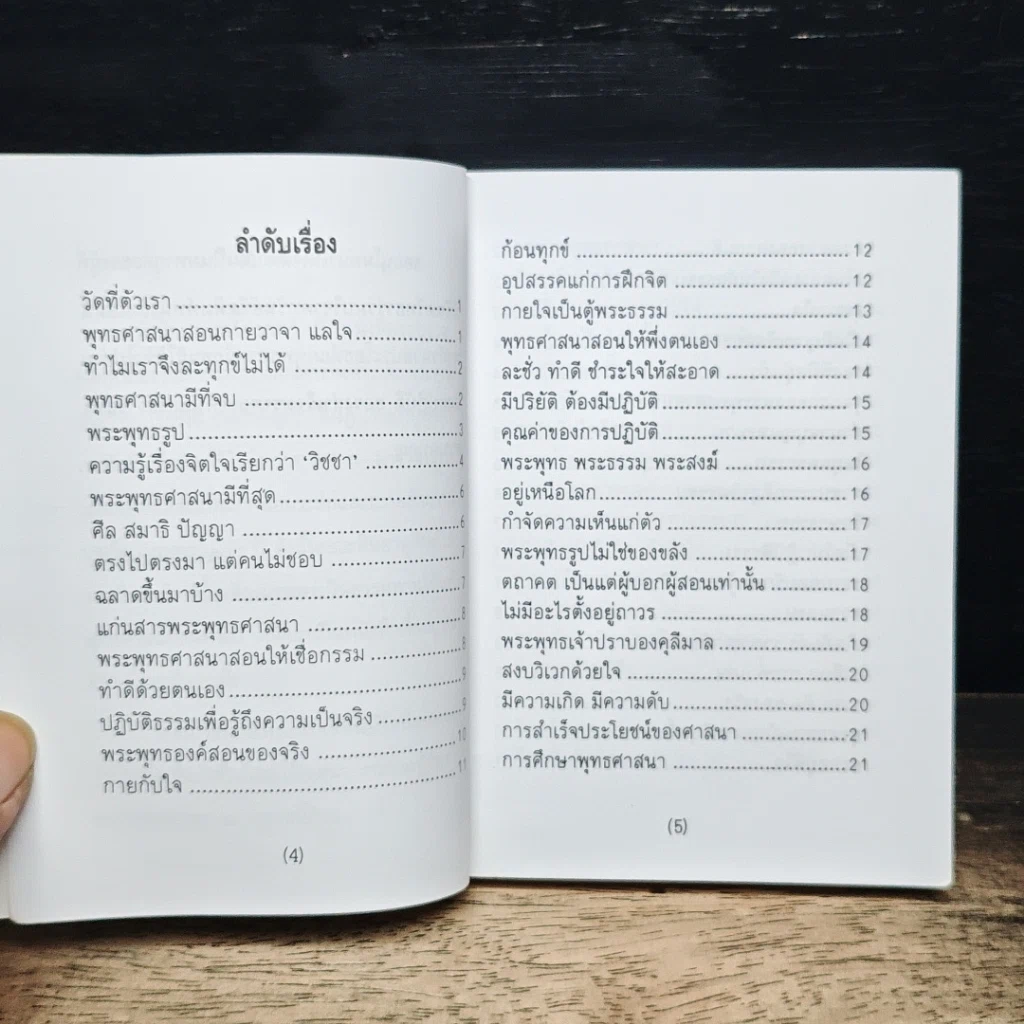 ลำดับเรื่อง
วัดที่ตัวเรา ........................................ 1
พุทธศาสนาสอนกายวาจา แลใจ ................ 1
ทำไมเราจึงละทุกข์ไม่ได้ ........................ 2
พุทธศาสนามีที่จบ ................................ 2
พระพุทธรูป ........................................ 3
ความรู้เรื่องจิตใจเรียกว่า ‘วิชชา’ ............. 4
พระพุทธศาสนามีที่สุด ........................... 6
ศีล สมาธิ ปัญญา ................................. 6
ตรงไปตรงมา แต่คนไม่ชอบ ..................... 7
ฉลาดขึ้นมาบ้าง .................................... 7
แก่นสารพระพุทธศาสนา ......................... 8
พระพุทธศาสนาสอนให้เชื่อกรรม ............... 8
ทำดีด้วยตนเอง .................................... 9
ปฏิบัติธรรมเพื่อรู้ถึงความเป็นจริง ............. 9
พระพุทธองค์สอนของจริง ....................... 10
กายกับใจ .......................................... 11
(4)
ก้อนทุกข์ .......................................... 12
อุปสรรคแก่การฝึกจิต ............................ 12
กายใจเป็นตู้พระธรรม ............................ 13
พุทธศาสนาสอนให้พึ่งตนเอง ................... 14
ละชั่ว ทำดี ชำระใจให้สะอาด ................... 14
มีปริยัติ ต้องมีปฏิบัติ ............................. 15
คุณค่าของการปฏิบัติ ............................. 15
พระพุทธ พระธรรม พระสงฆ์ .................... 16
อยู่เหนือโลก ....................................... 16
กำจัดความเห็นแก่ตัว ............................. 17
พระพุทธรูปไม่ใช่ของขลัง ....................... 17
ตถาคต เป็นแต่ผู้บอกผู้สอนเท่านั้น ............ 18
ไม่มีอะไรตั้งอยู่ถาวร .............................. 18
พระพุทธเจ้าปราบองคุลีมาล .................... 19
สงบวิเวกด้วยใจ ................................... 20
มีความเกิด มีความดับ ............................ 20
การสำเร็จประโยชน์ของศาสนา ................. 21
การศึกษาพุทธศาสนา ............................ 21
(5)